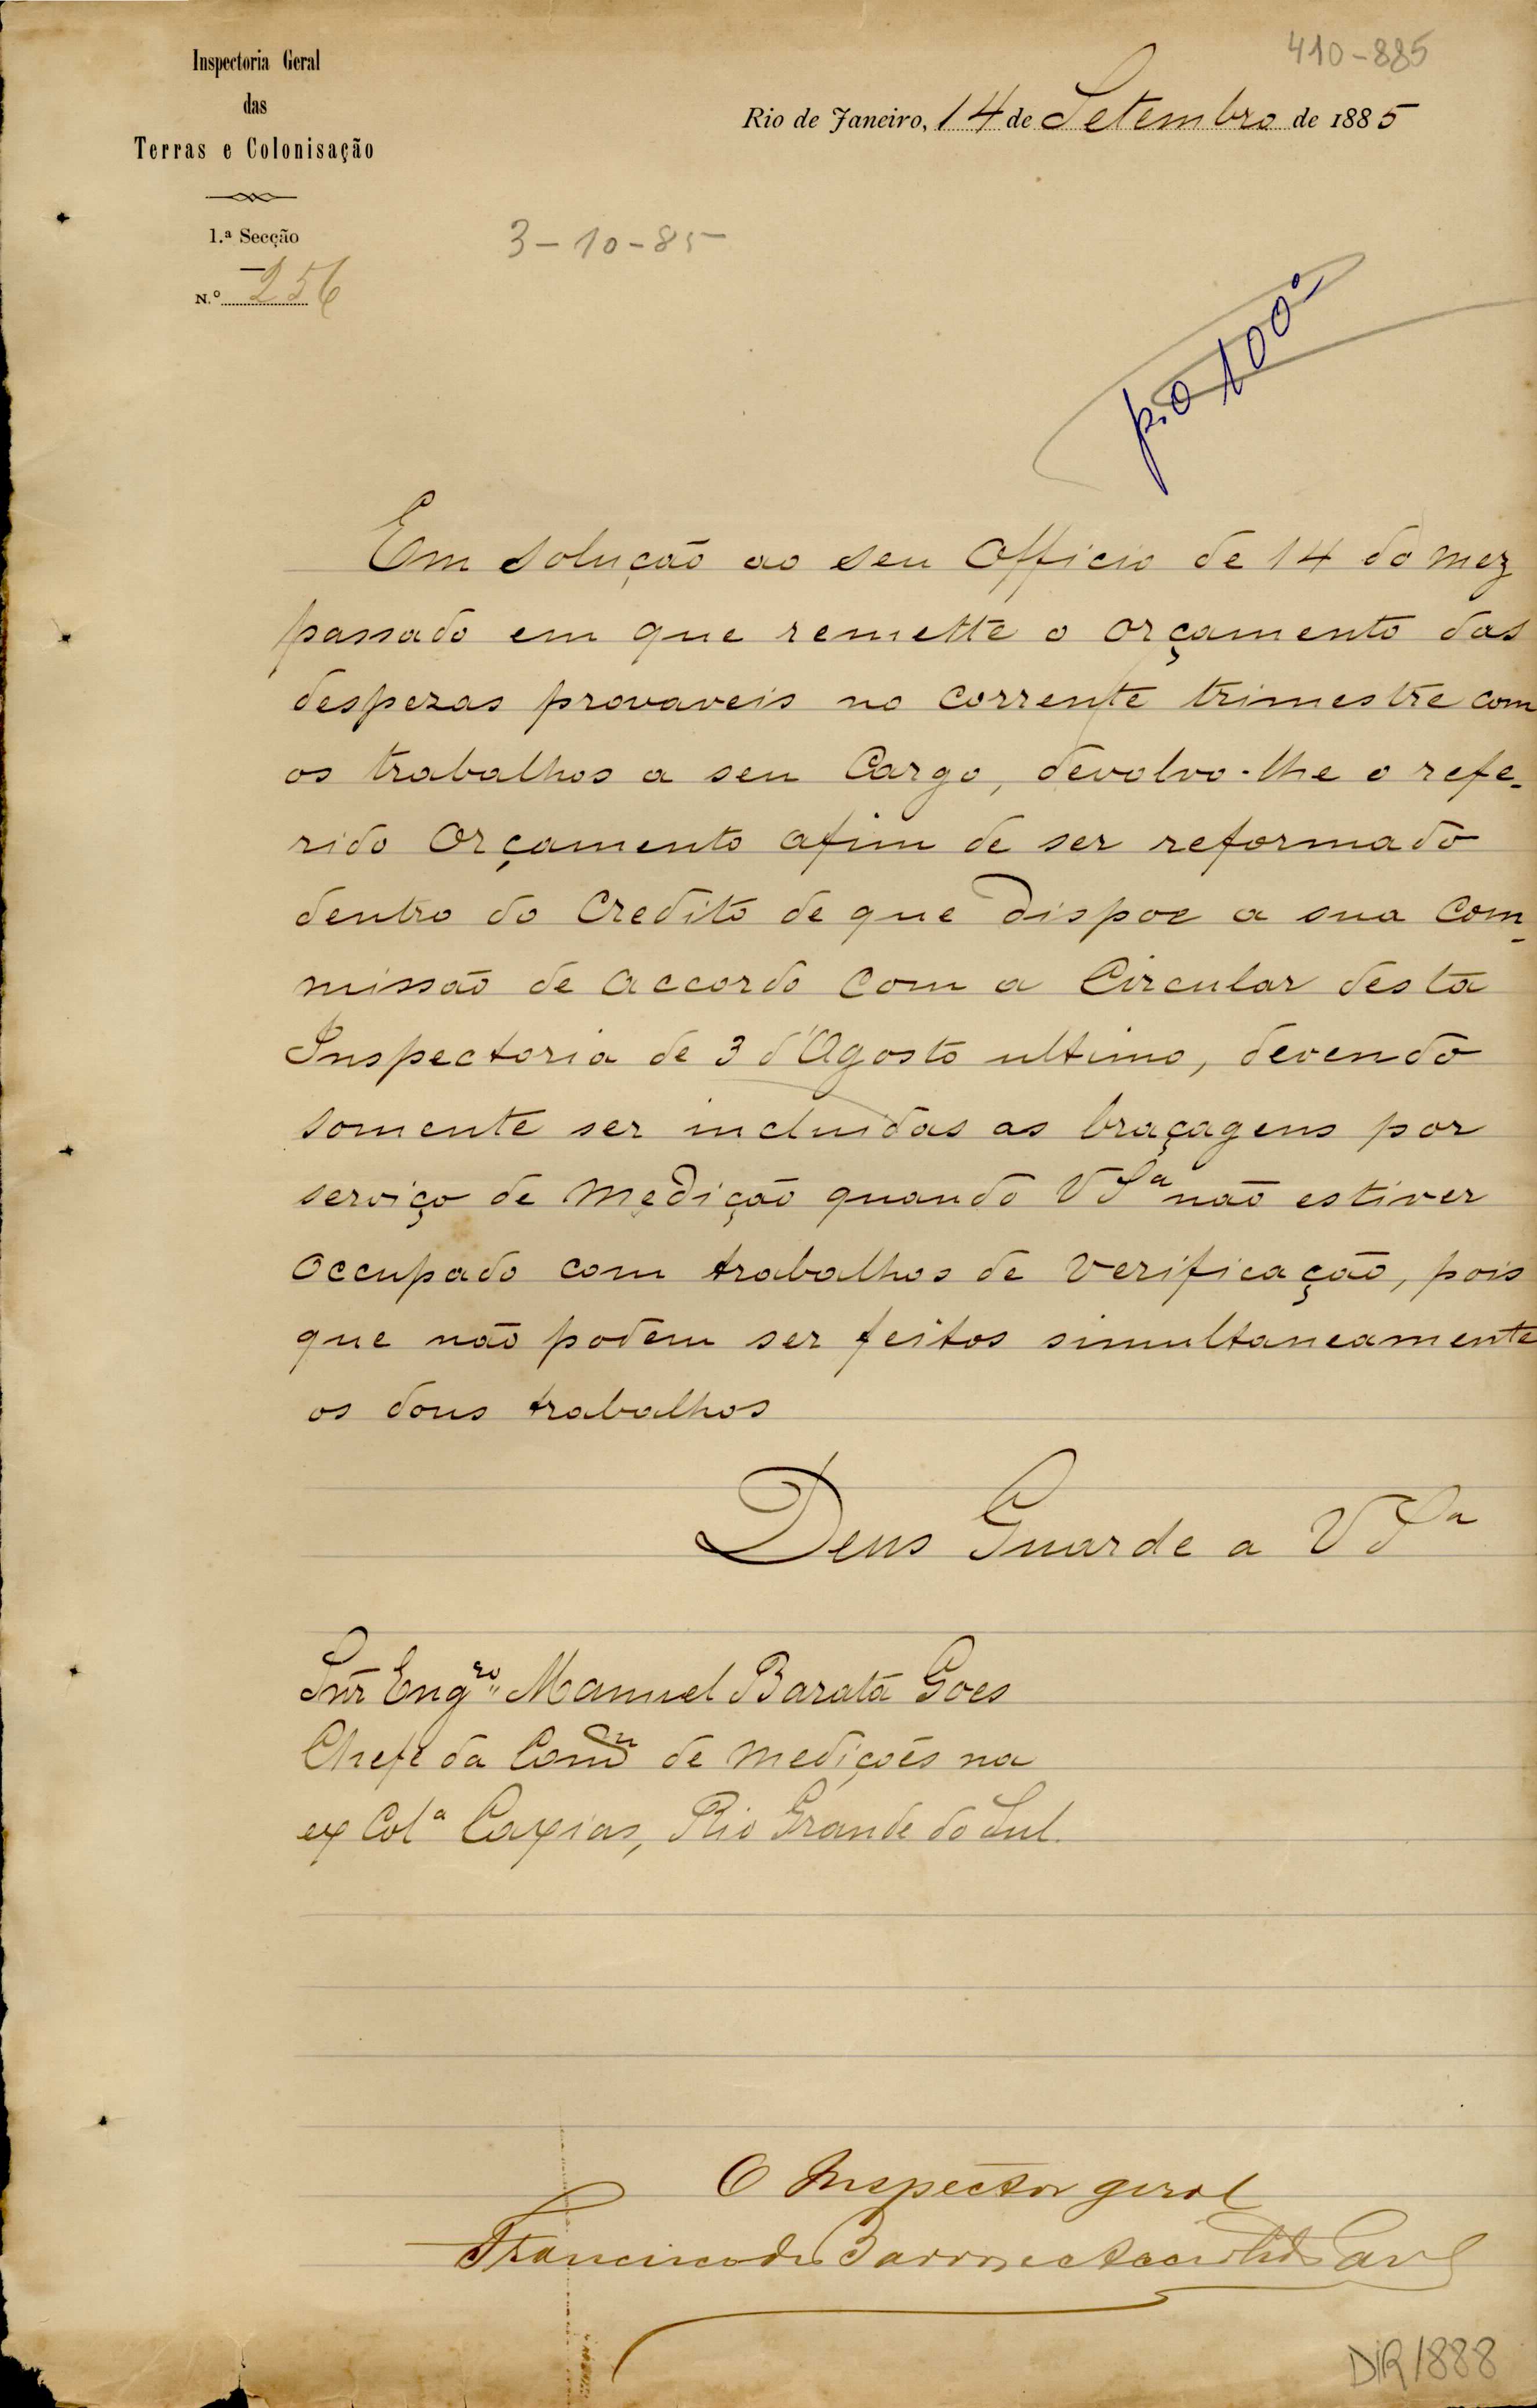 Inspectoria Geral
das
Terras e Colonisação
1.ª Secção
N.º 256
410-885
Rio de Janeiro, 14 de Setembro de 1885
3-10-85
Em solução ao seu Officio de 14 do mez
passado em que remette o orçamento das
despezas provaveis no corrente trimestre com
os trabalhos a seu Cargo, devolvo-lhe o refe-
rido Orçamento afim de ser reformado
dentro do Credito de que dispoe a sua Com-
missão de accordo com a Circular desta
Inspectoria de 3 d'Agosto ultimo, devendo
somente ser incluidas as braçagens por
serviço de medição quando V Sª não estiver
occupado com trabalhos de verificação, pois
que não podem ser feitos simultaneamente
os dous trabalhos
Deus Guarde a V Sª
Snr Engro Manuel Barata Goes
Chefe da Comm de medições na
ex Colª Caxias, Rio Grande do Sul.
O Inspector geral
Francisco de Barros e Accioli de
DIR/888